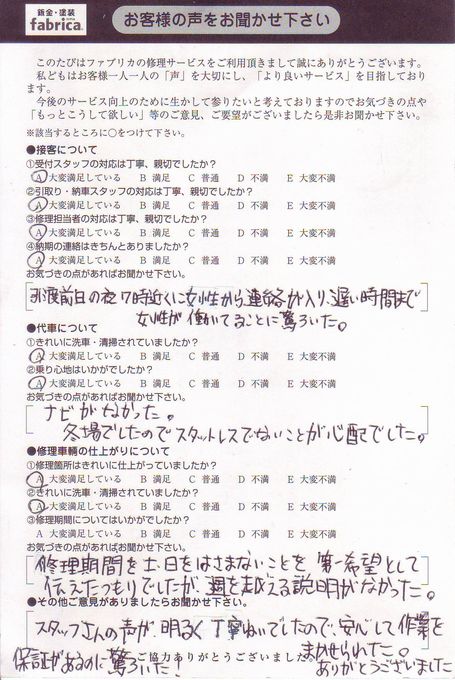 鈑金・塗装
fabrica.
お客様の声をお聞かせ下さい
このたびはファブリカの修理サービスをご利用頂きまして誠にありがとうございます。
私どもはお客様一人一人の「声」を大切にし、「より良いサービス」を目指しており
ます。
今後のサービス向上のために生かして参りたいと考えておりますのでお気づきの点や
「もっとこうして欲しい」等のご意見、ご要望がございましたら是非お聞かせ下さい。
※該当するところに○をつけて下さい。
●接客について
①受付スタッフの対応は丁寧、親切でしたか?
A 大変満足している B 満足 C 普通 D 不満 E 大変不満
②引取り・納車スタッフの対応は丁寧、親切でしたか?
A 大変満足している B 満足 C 普通 D 不満 E 大変不満
③修理担当者の対応は丁寧、親切でしたか?
A 大変満足している B 満足 C 普通 D 不満 E 大変不満
④納期の連絡はきちんとありましたか?
A 大変満足している B 満足 C 普通 D 不満 E 大変不満
お気づきの点があればお聞かせ下さい。
引渡前日の夜7時近くに女性から連絡が入り、遅い時間まで
女性が働いてることに驚ろいた。
●代車について
①きれいに洗車・清掃されていましたか?
A 大変満足している B 満足 C 普通 D 不満 E 大変不満
②乗り心地はいかがでしたか?
A 大変満足している B 満足 C 普通 D 不満 E 大変不満
お気づきの点があればお聞かせ下さい。
ナビがなかった。
冬場でしたのでスタットレスでないことが心配でした。
●修理車輌の仕上がりについて
①修理箇所はきれいに仕上がっていましたか?
A 大変満足している B 満足 C 普通 D 不満 E 大変不満
②きれいに洗車・清掃されていましたか?
A 大変満足している B 満足 C 普通 D 不満 E 大変不満
③修理期間についてはいかがでしたか?
A 大変満足している B 満足 C 普通 D 不満 E 大変不満
お気づきの点があればお聞かせ下さい。
修理期間を土日をはさまないことを第一希望として
伝えたつもりでしたが、週を越える説明がなかった。
●その他ご意見がありましたらお聞かせ下さい。
スタッフさんの声が、明るく丁寧ねいでしたので、安心して作業を
まかせられた。
ありがとうございました
保証があるのに驚ろいた!
ご協力ありがとうございました。